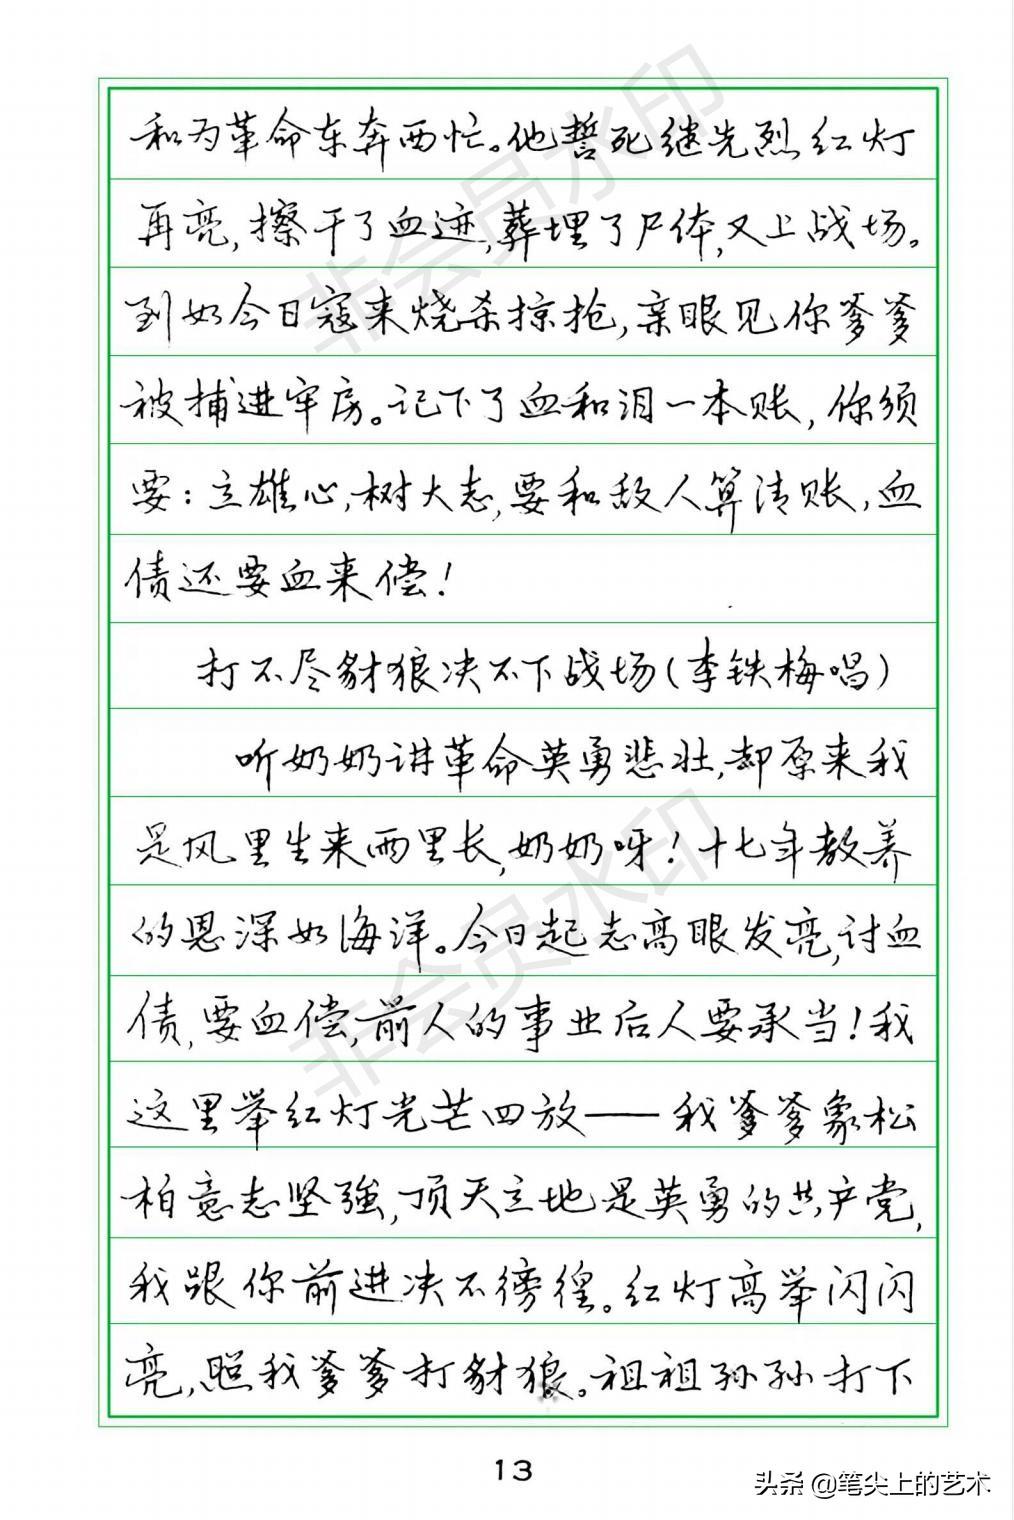 和为革命东奔西忙。他誓死继先烈红灯
再亮,擦干了血迹,葬埋了尸体,又上战场。
到如今日寇来烧杀掠抢,亲眼见你爹爹
被捕进牢房。记下了血和泪一本账,你须
要:立雄心,树大志,要和敌人算清账,血
债还要血来偿!
打不尽豺狼决不下战场(李铁梅唱)
听奶奶讲革命英勇悲壮,却原来我
是风里生来雨里长,奶奶呀!十七年教养
的恩深如海洋。今日起志高眼发亮,讨血
债,要血偿,前人的事业后人要承当!我
这里举红灯光芒四放——我爹爹象松
柏意志坚强,顶天立地是英勇的共产党,
我跟你前进决不徬徨。红灯高举闪闪
亮,照我爹爹打豺狼。祖祖孙孙打下
13
头条 @笔尖上的艺术
非会员水印
非会员水印